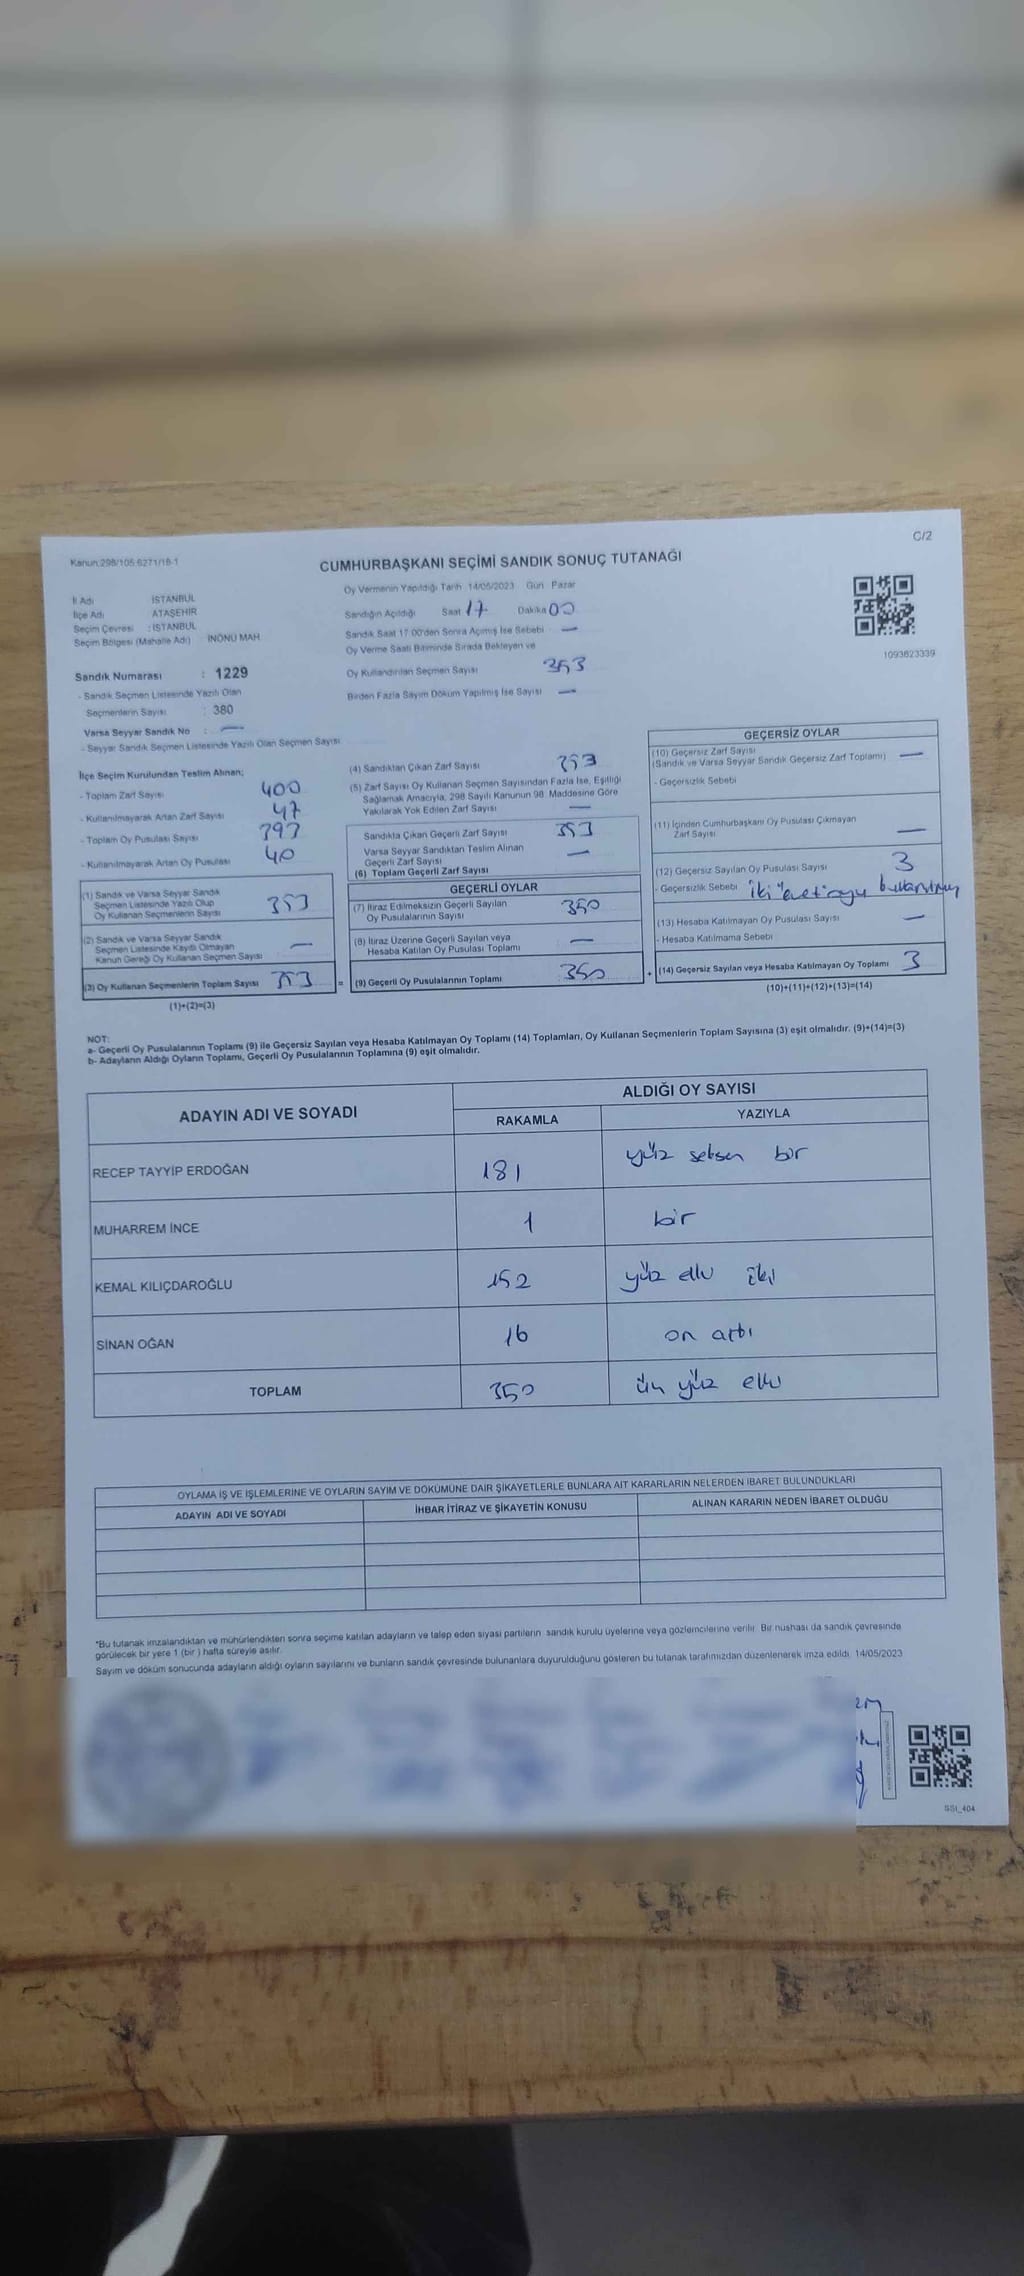 C/2
Kanun:298/105 6271/18-1
CUMHURBAŞKANI SEÇİMİ SANDIK SONUÇ TUTANAĞI
İl Adı : İSTANBUL
İlçe Adı : ATAŞEHİR
Seçim Çevresi : İSTANBUL
Seçim Bölgesi (Mahalle Adı) İNÖNÜ MAH.
Oy Vermenin Yapıldığı Tarih 14/05/2023 Gün Pazar
Sandığın Açıldığı Saat 17 Dakika 00
Sandık Saat 17:00'den Sonra Açımış İse Sebebi —
Oy Verme Saati Bitiminde Sırada Bekleyen ve
Oy Kullandırılan Seçmen Sayısı 353
Birden Fazla Sayım Döküm Yapılmış İse Sayısı —
1093623339
Sandık Numarası : 1229
- Sandık Seçmen Listesinde Yazılı Olan
Seçmenlerin Sayısı : 380
Varsa Seyyar Sandık No : —
- Seyyar Sandık Seçmen Listesinde Yazılı Olan Seçmen Sayısı
İlçe Seçim Kurulundan Teslim Alınan;
- Toplam Zarf Sayısı 400
- Kullanılmayarak Artan Zarf Sayısı 47
- Toplam Oy Pusulası Sayısı 393
- Kullanılmayarak Artan Oy Pusulası 40
(1) Sandık ve Varsa Seyyar Sandık
Seçmen Listesinde Yazılı Olup
Oy Kullanan Seçmenlerin Sayısı 353
(2) Sandık ve Varsa Seyyar Sandık
Seçmen Listesinde Kayıtlı Olmayan
Kanun Gereği Oy Kullanan Seçmen Sayısı —
(3) Oy Kullanan Seçmenlerin Toplam Sayısı 353 =
(1)+(2)=(3)
(4) Sandıktan Çıkan Zarf Sayısı 353
(5) Zarf Sayısı Oy Kullanan Seçmen Sayısından Fazla İse, Eşitliği
Sağlamak Amacıyla, 298 Sayılı Kanunun 98. Maddesine Göre
Yakılarak Yok Edilen Zarf Sayısı —
Sandıkta Çıkan Geçerli Zarf Sayısı 353
Varsa Seyyar Sandıktan Teslim Alınan
Geçerli Zarf Sayısı —
(6) Toplam Geçerli Zarf Sayısı
GEÇERLİ OYLAR
(7) İtiraz Edilmeksizin Geçerli Sayılan
Oy Pusulalarının Sayısı 350
(8) İtiraz Üzerine Geçerli Sayılan veya
Hesaba Katılan Oy Pusulası Toplamı —
(9) Geçerli Oy Pusulalarının Toplamı 350 +
GEÇERSİZ OYLAR
(10) Geçersiz Zarf Sayısı
(Sandık ve Varsa Seyyar Sandık Geçersiz Zarf Toplamı) —
- Geçersizlik Sebebi
(11) İçinden Cumhurbaşkanı Oy Pusulası Çıkmayan
Zarf Sayısı —
(12) Geçersiz Sayılan Oy Pusulası Sayısı 3
- Geçersizlik Sebebi İki
(13) Hesaba Katılmayan Oy Pusulası Sayısı —
- Hesaba Katılmama Sebebi
(14) Geçersiz Sayılan veya Hesaba Katılmayan Oy Toplamı 3
(10)+(11)+(12)+(13)=(14)
NOT:
a- Geçerli Oy Pusulalarının Toplamı (9) ile Geçersiz Sayılan veya Hesaba Katılmayan Oy Toplamı (14) Toplamları, Oy Kullanan Seçmenlerin Toplam Sayısına (3) eşit olmalıdır. (9)+(14)=(3)
b- Adayların Aldığı Oyların Toplamı, Geçerli Oy Pusulalarının Toplamına (9) eşit olmalıdır.
ADAYIN ADI VE SOYADI ALDIĞI OY SAYISI
RAKAMLA YAZIYLA
RECEP TAYYİP ERDOĞAN 181 yüz seksen bir
MUHARREM İNCE 1 bir
KEMAL KILIÇDAROĞLU 152 yüz elli iki
SİNAN OĞAN 16 on altı
TOPLAM 350 üç yüz elli
OYLAMA İŞ VE İŞLEMLERİNE VE OYLARIN SAYIM VE DÖKÜMÜNE DAİR ŞİKAYETLERLE BUNLARA AİT KARARLARIN NELERDEN İBARET BULUNDUKLARI
ADAYIN ADI VE SOYADI İHBAR İTİRAZ VE ŞİKAYETİN KONUSU ALINAN KARARIN NEDEN İBARET OLDUĞU
*Bu tutanak imzalandıktan ve mühürlendikten sonra seçime katılan adayların ve talep eden siyasi partilerin sandık kurulu üyelerine veya gözlemcilerine verilir. Bir nushası da sandık çevresinde
görülecek bir yere 1 (bir ) hafta süreyle asılır.
Sayım ve döküm sonucunda adayların aldığı oyların sayılarını ve bunların sandık çevresinde bulunanlara duyurulduğunu gösteren bu tutanak tarafımızdan düzenlenerek imza edildi. 14/05/2023
SSI_404